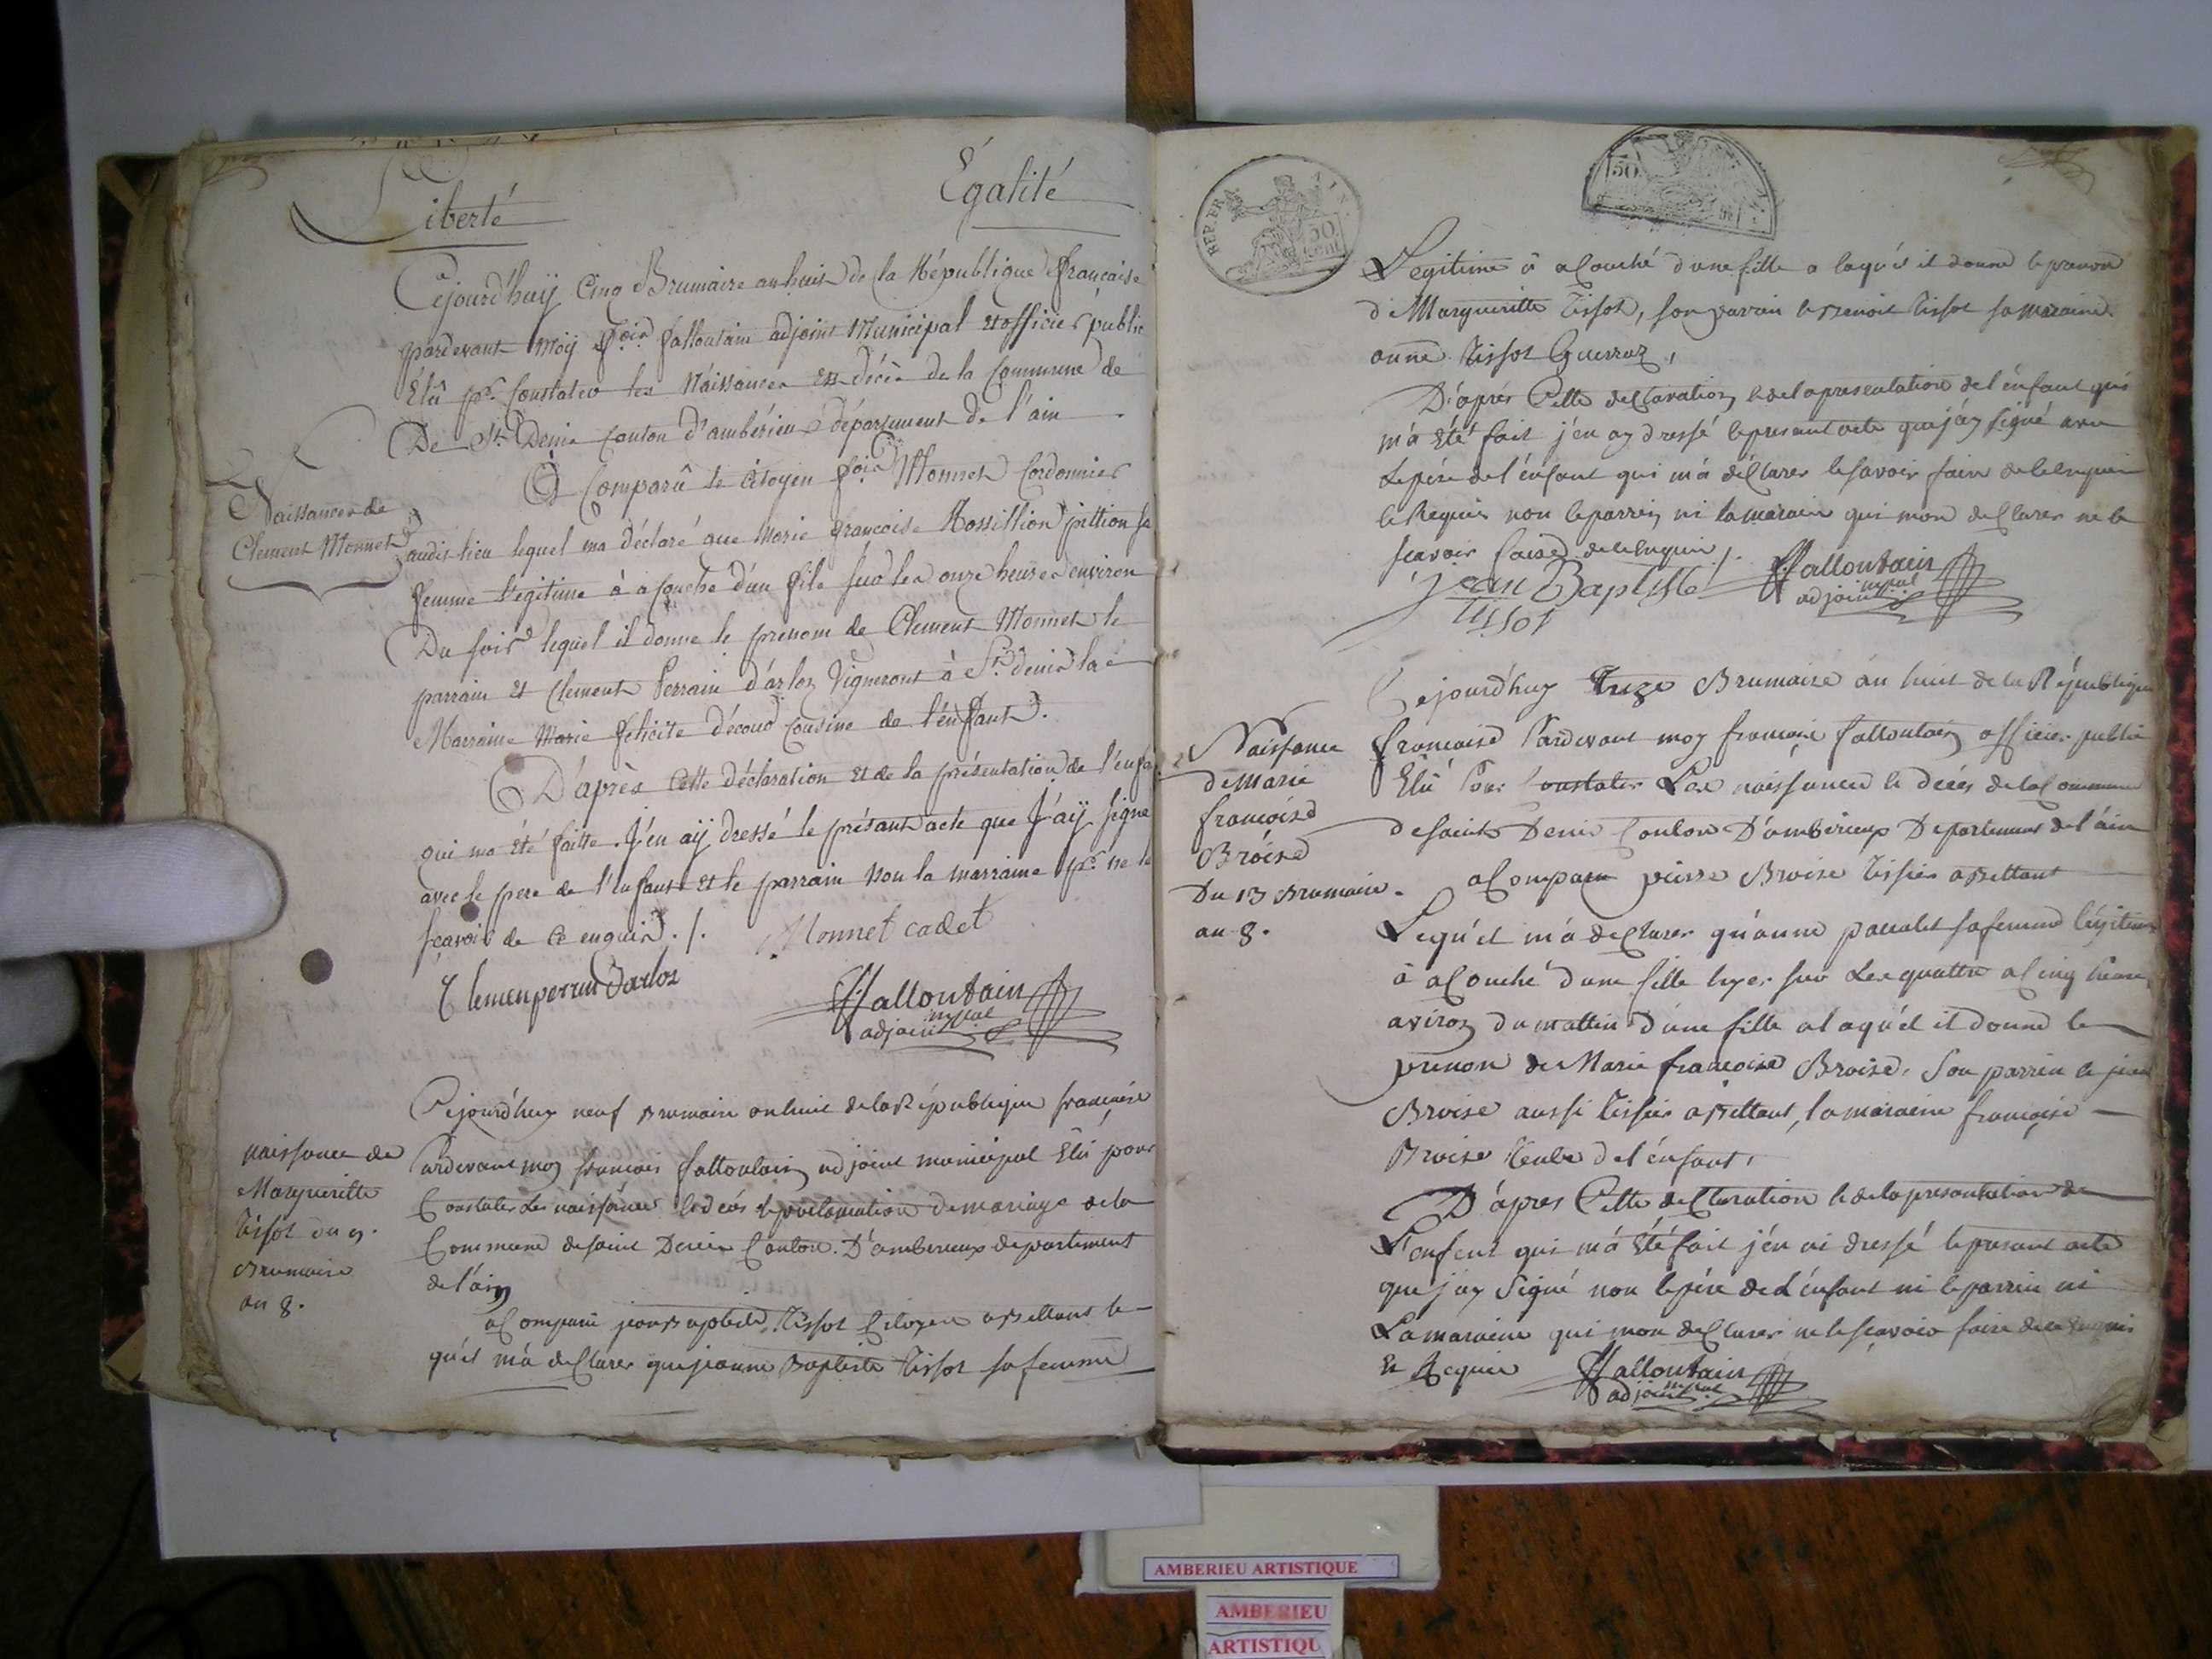 Liberté Égalité
Cejourd'huÿ Cinq Brumaire an huit de la République française
pardevant Moÿ fois falloutain adjoint Municipal et officier public
Élû pr Constater les Naissances et décès de la Commune de
De St Denis Canton d'ambérieu département de l'ain
A Comparû le Citoyen fois Monnet Cordonnier
Naissance de
Clement Monnet
audit lieu lequel ma déclaré que Marie francoise Rossillion
femme légitime à acouché d'un fils sur les onze heures environ
Du soir lequel il donne le prenom de Clement Monnet le
parrain et Clement Perrain d'arloz Vigneront à St denis la
Marraine Marie felicite découd Cousine de l'enfant.
D'après Cette déclaration et de la présentation de l'enfa
qui ma été faitte. J'en aÿ dressé le présant acte que J'aÿ signe
avec le pere de l'enfant et le parrain non la marraine pr ne le
sçavoir de ce enquis ./.
Monnet cadet
Clemen perrin Darloz
ffalloutain
adjoint mpal
naissance de
Margueritte
tissot du 9.
Brumaire
an 8.
Cejourd'huy neuf Brumaire an huit de la République francaise
Pardevant moy francois falloutain adjoint municipal Elû pour
Constater Les naissances le decés le proclamation de mariage de la
Commune de saint Denis Canton D'amberieux departement
de l'ain
a Comparu jean Baptiste tissot Citoyen le
qu'el m'a declarer que jeanne Baptiste tissot sa femme
REP. FRA.
50
cent
50
Legitime à acouché d'une fille a laqu'el il donne le prenom
de Margueritte tissot, son parain Benoit tissot sa maraine
anne tissot Guerraz,
D'aprés Cette declaration et de la presentation de l'énfant qui
m'a été fait j'en ay dressé le presant acte que j'ay signé avec
Le pére de l'énfant qui m'a déclarer le savoir faire de ce enquis
le Requis non le parrein ni la maraine qui mon declarer ne le
scavoir faire de ce enquis ./.
jean Baptiste
tissot
ffalloutain
adjoint mpal
Naissance
de Marie
françoise
Broise
Du 13 Brumaire
an 8.
Cejourd'huy treize Brumaire an huit de la République
francaise Pardevant moy francois falloutain officier public
Elû Pour Constater Les naissance le décés de la Commune
de saint Denis Canton D'amberieux Departement de l'ain
a Comparu pierre Broise tissier
Lequ'el m'à declarer qu'anne sa femme légitime
à acouché d'une fille hyer sur Les quattre a Cinq heure
aviron du mattin d'une fille a laqu'el il donne le
prenon de Marie françoise Broise, Son parrin le jean
Broise aussi tissier la maraine françoise
Broise de l'énfant,
D'àpres Cette declaration et de la presantation de
L'enfent qui m'à été fait j'en ai dressé le presant acte
que j'ay signé non le pére de L'énfant ni le parrein ni
La maraine qui mon declarer ne le sçavoir faire de ce enquis
Et Requis
ffalloutain
adjoint mpal
AMBERIEU ARTISTIQUE
AMBERIEU
ARTISTIQU